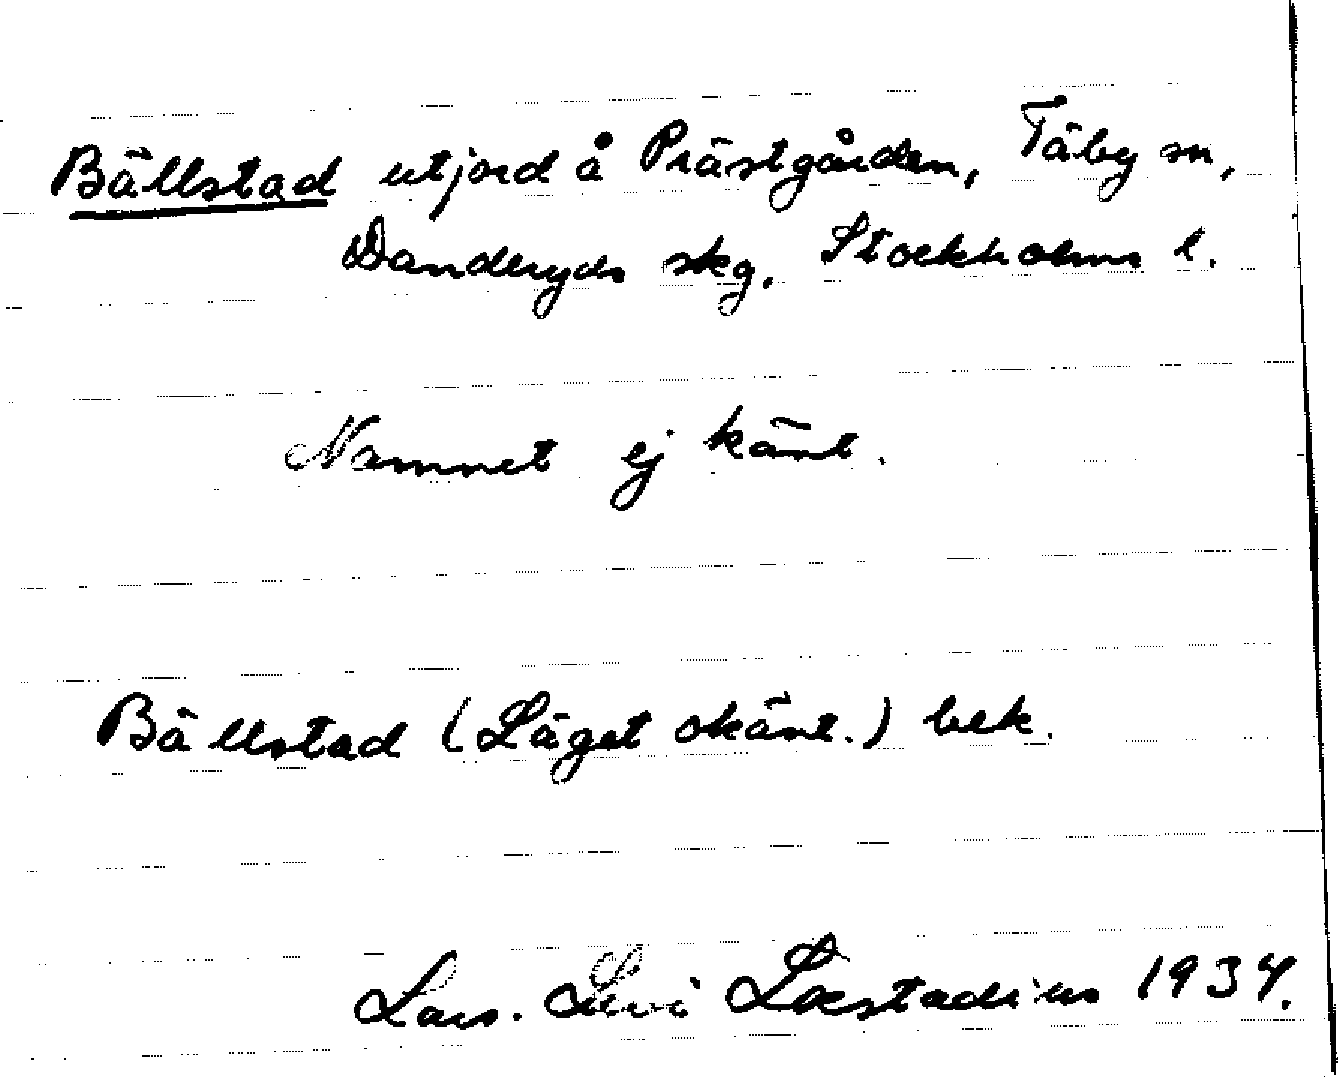 Bällstad utjord å Prästgården, Täby sn,
Danderyds skg, Stockholms l.
Namnet ej känt.
Bällstad (Läget okänt.) bek.
Lars. Levi Læstadius 1934.